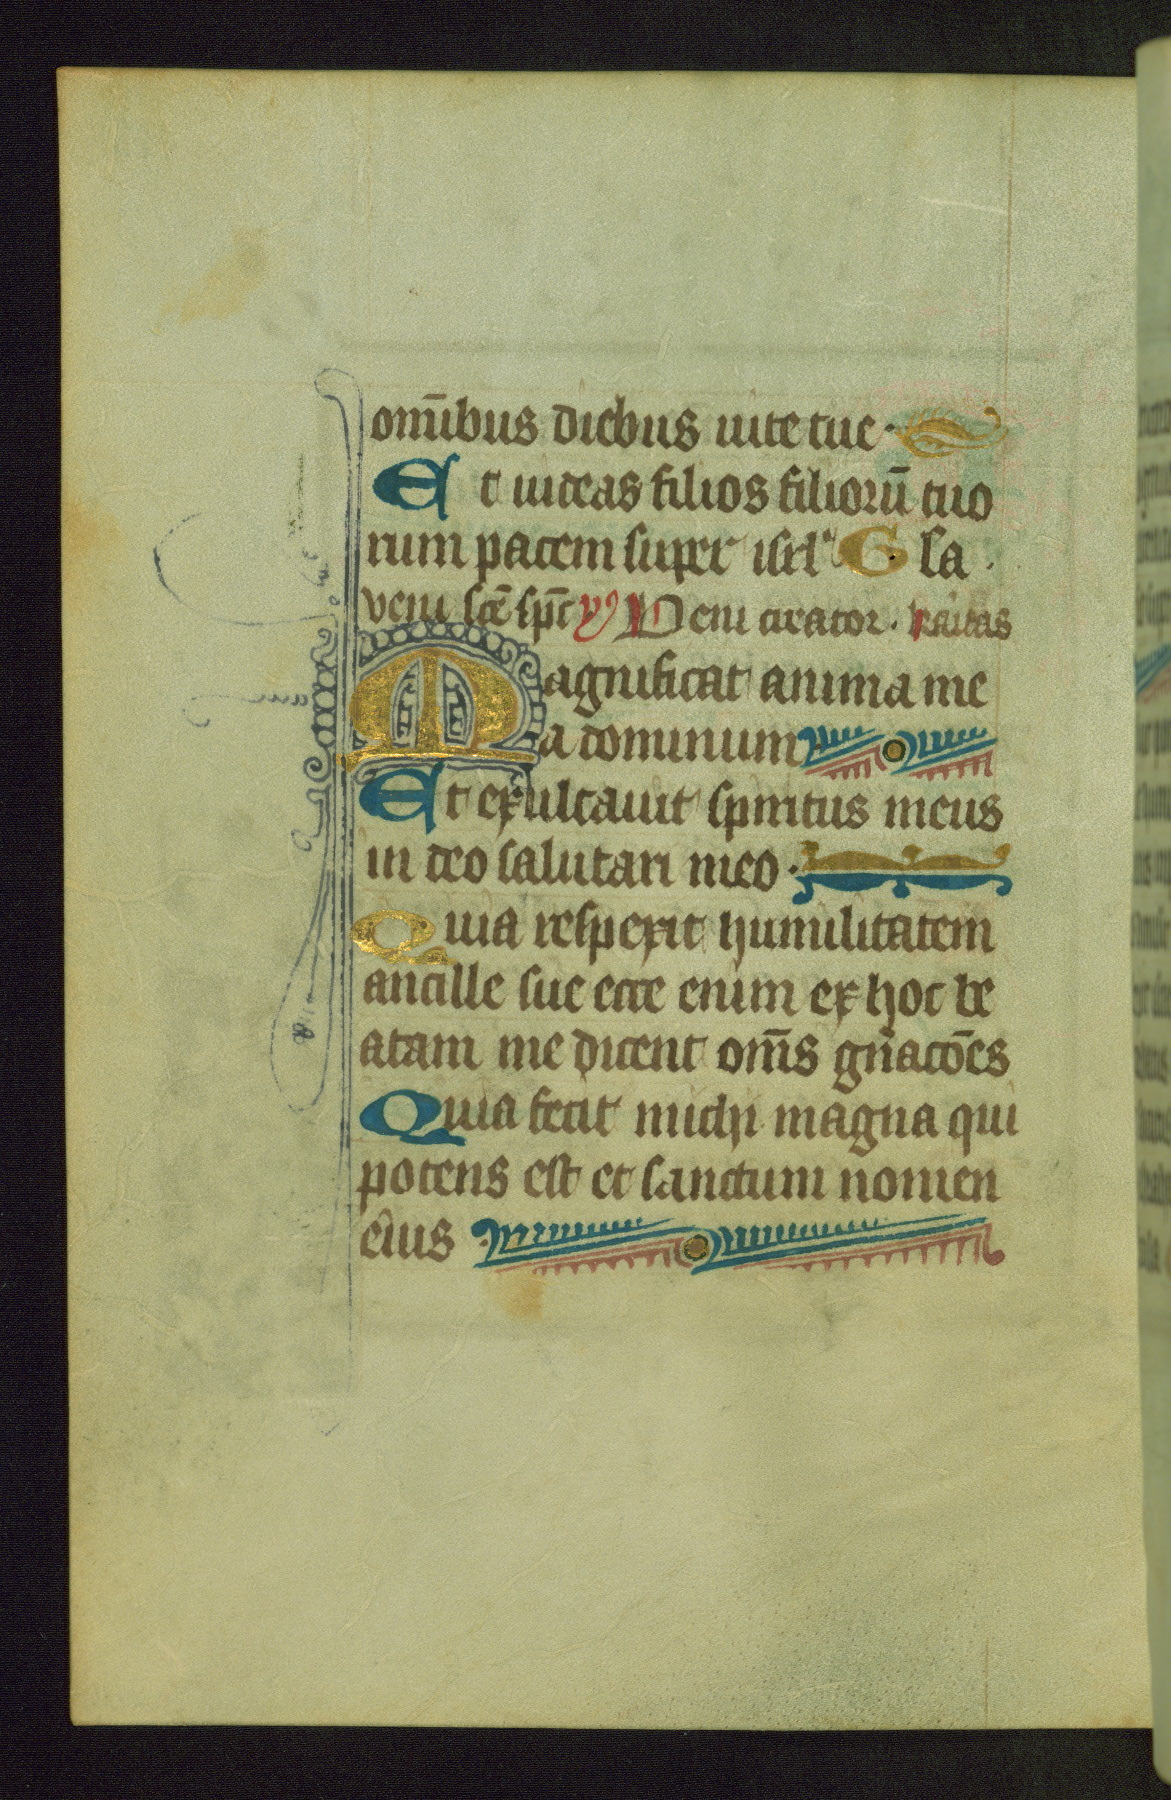 omībus diebus uite tue.
Et uideas filios filiorū tuo
rum pacem super isrl' G la
veni scē spc̄ ym Veni creator.
Magnificat anima me
a dominum
Et exultauit spiritus meus
in deo salutari meo.
Quia respexit humilitatem
ancille sue ecce enim ex hoc be
atam me dicent om̄s gn̄acōes
Quia fecit michi magna qui
potens est et sanctum nomen
eius